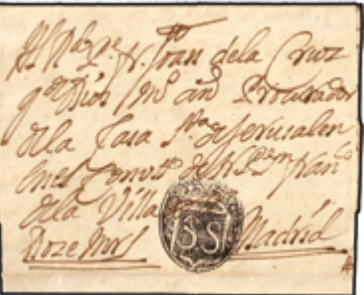 Al R.do P.e Fr. Joan dela Cruz
q.e Dios m.s an.s Procurador
dela Casa S.ta de Jerusalen
en el Comv.to de N. P. S.n Fran.co
dela Villa Madrid
Doze Mrs